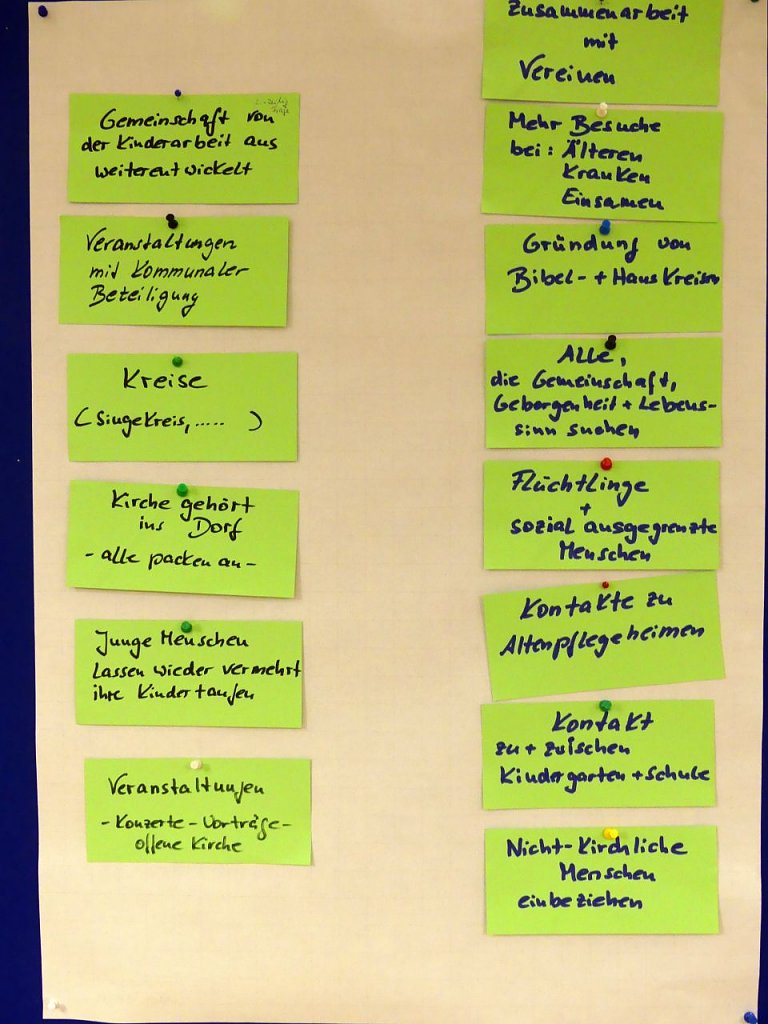 Gemeinschaft von
der Kinderarbeit aus
weiterentwickelt
Veranstaltungen
mit kommunaler
Beteiligung
Kreise
(Singekreis,..... )
Kirche gehört
ins Dorf
- alle packen an -
Junge Menschen
lassen wieder vermehrt
ihre Kinder taufen
Veranstaltungen
- Konzerte - Vorträge -
offene Kirche
Zusammenarbeit
mit
Vereinen
Mehr Besuche
bei: Älteren
Kranken
Einsamen
Gründung von
Bibel- + Hauskreisen
Alle,
die Gemeinschaft,
Geborgenheit + Lebens-
sinn suchen
Flüchtlinge
+
sozial ausgegrenzte
Menschen
Kontakte zu
Altenpflegeheimen
Kontakt
zu + zwischen
Kindergarten + Schule
Nicht-Kirchliche
Menschen
einbeziehen